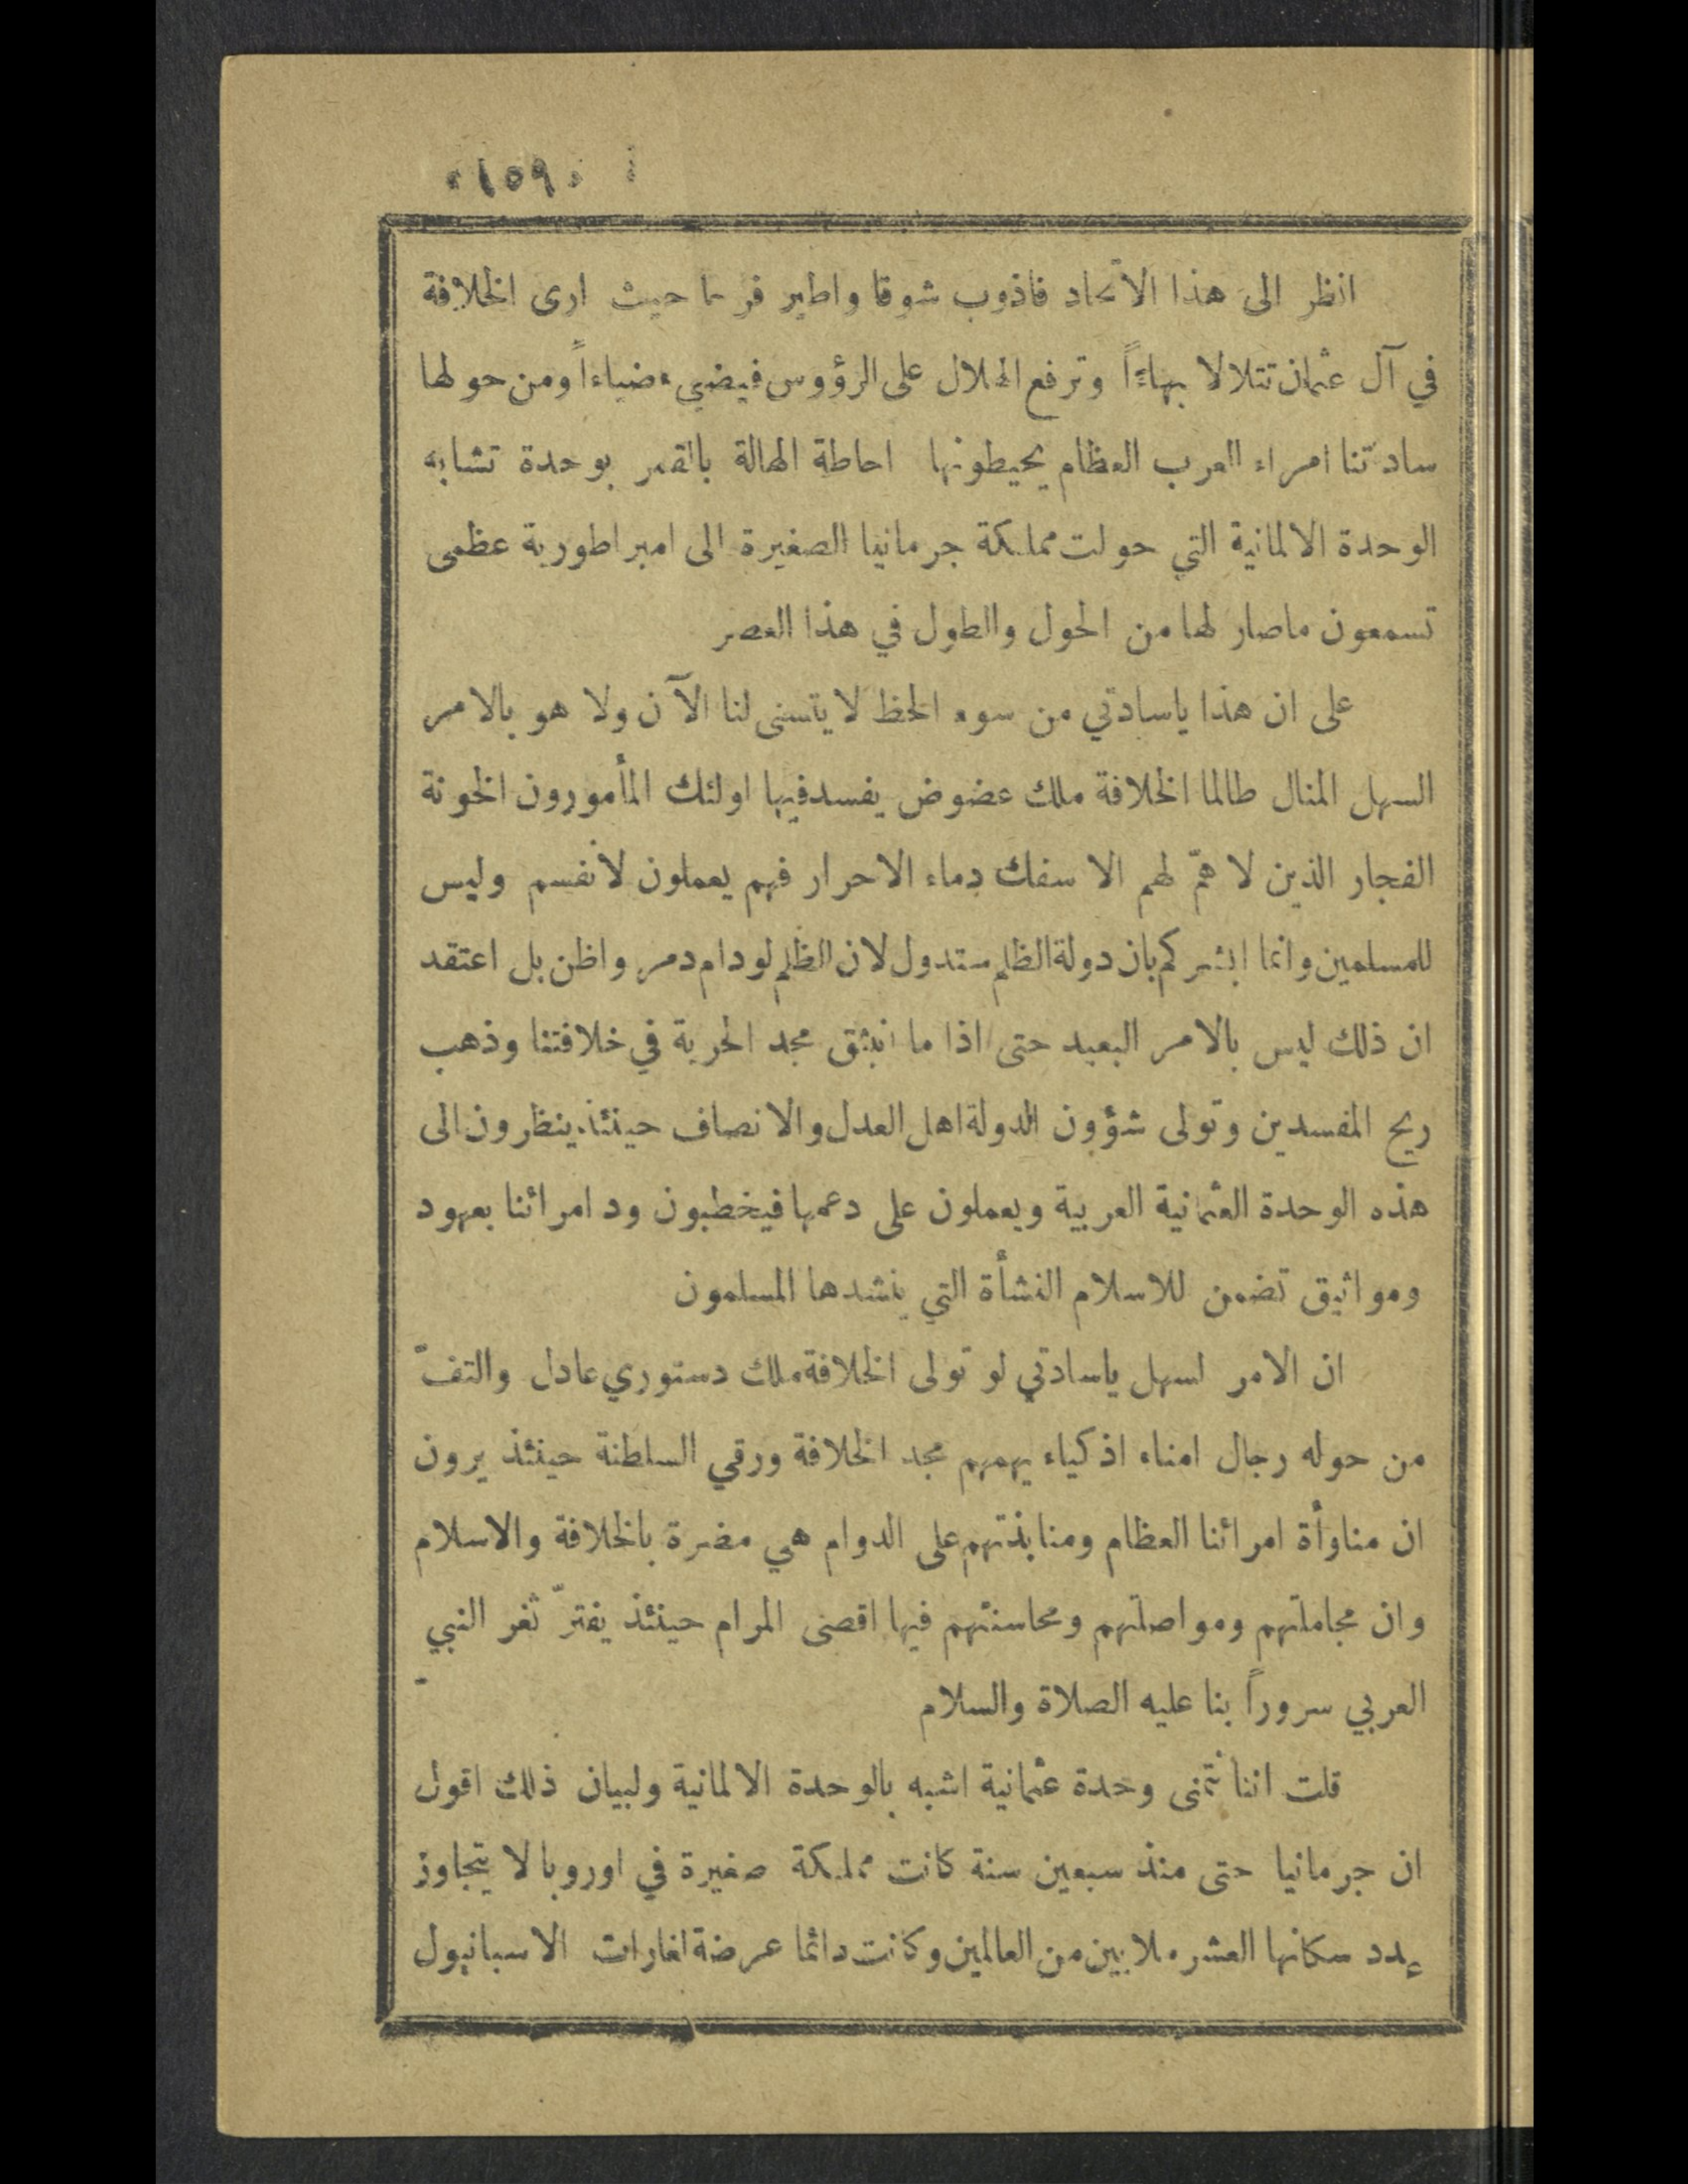 ١٥٩
انظر الى هذا الاتحاد فاذوب شوقا واطير فرحا حيث ارى الخلافة
في آل عثمان تتلالا بهاءً وترفع الهلال على الرؤوس فيضيء ضياءاً ومن حولها
ساداتنا امراء العرب العظام يحيطونها احاطة الهالة بالقمر بوحدة تشابه
الوحدة الالمانية التي حولت مملكة جرمانيا الصغيرة الى امبراطورية عظمى
تسمعون ماصار لها من الحول والطول في هذا العصر
على ان هذا ياسادتي من سوء الحظ لا يتسنى لنا الآن ولا هو بالامر
السهل المنال طالما الخلافة ملك عضوض يفسد فيها اولئك المأمورون الخونة
الفجار الذين لا همّ لهم الا سفك دماء الاحرار فهم يعملون لأنفسم وليس
للمسلمين وانما ابشركم بان دولة الظلم ستدول لان الظلم لو دام دمر واظن بل اعتقد
ان ذلك ليس بالامر البعيد حتى اذا ما انبثق مجد الحرية في خلافتنا وذهب
ريح المفسدين وتولى شؤون الدولة اهل العدل والانصاف حينئذ ينظرون الى
هذه الوحدة العثمانية العربية ويعملون على دعمها فيخطبون ود امرائنا بعهود
ومواثيق تضمن للاسلام النشأة التي ينشدها المسلمون
ان الامر لسهل ياسادتي لو تولى الخلافة ملك دستوري عادل والتفّ
من حوله رجال امناء اذكياء يهمهم مجد الخلافة ورقي السلطنة حينئذ يرون
ان مناوأة امرائنا العظام ومنابذتهم على الدوام هي مضرة بالخلافة والاسلام
وان مجاملتهم ومواصلتهم ومحاسنتهم فيها اقصى المرام حينئذ يفترّ ثغر النبي
العربي سروراً بنا عليه الصلاة والسلام
قلت اننا نتمنى وحدة عثمانية اشبه بالوحدة الالمانية ولبيان ذلك اقول
ان جرمانيا حتى منذ سبعين سنة كانت مملكة صغيرة في اوروبا لا يتجاوز
عدد سكانها العشر ملايين من العالمين وكانت دائما عرضة لغارات الاسبانيول